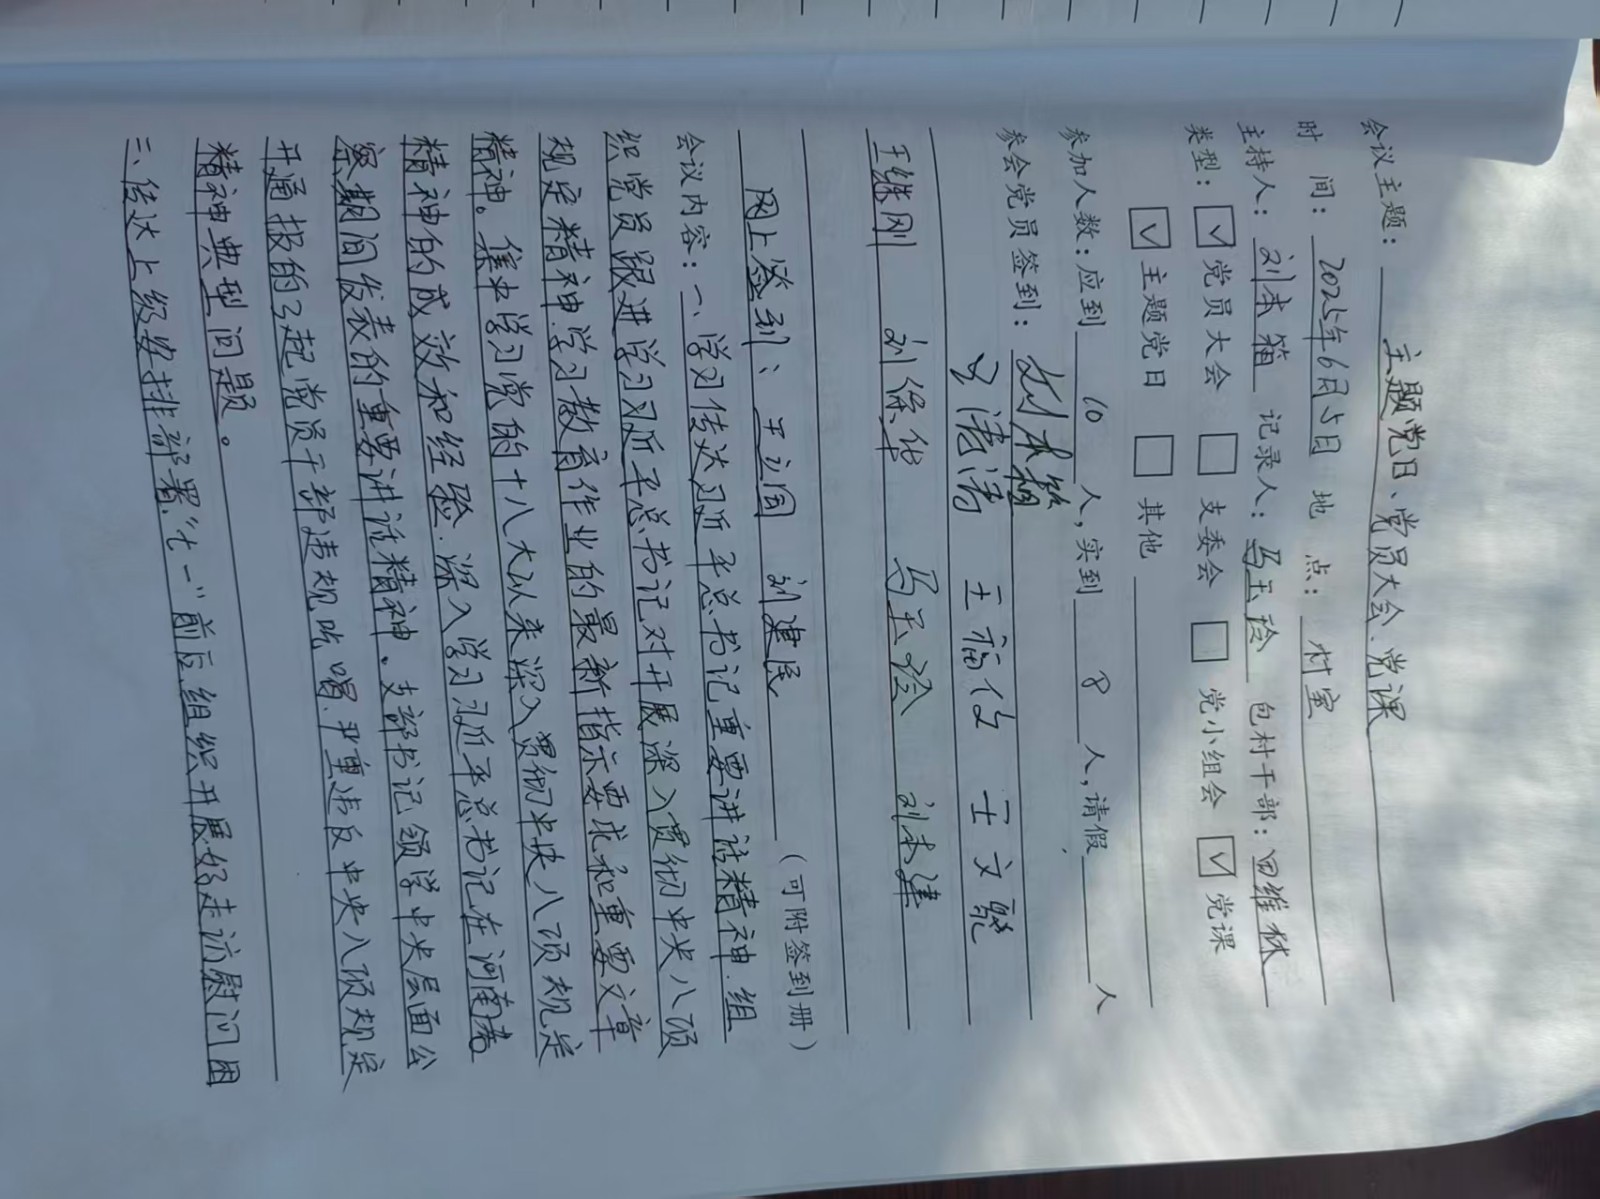 会议主题：主题党日、党员大会、党课
时 间：2025年6月5日 地 点：村室
主持人：刘本箱 记录人：马玉玲 包村干部：田维林
类型：☑党员大会 □支委会 □党小组会 ☑党课
☑主题党日 □其他
参加人数：应到 10 人，实到 8 人，请假 人
参会党员签到：刘本箱
王福仪 王文聚
王继刚 刘保华 马玉玲 刘本建
网上签到： 刘建民
（可附签到册）
会议内容：一、学习传达习近平总书记重要讲话精神.组
织党员跟进学习习近平总书记对开展深入贯彻中央八项
规定精神学习教育作业的最新指示要求和重要文章
精神。集中学习党的十八大以来深入贯彻中央八项规定
精神的成效和经验.深入学习习近平总书记在河南考
察期间发表的重要讲话精神。支部书记领学中央层面公
开通报的2起党员干部违规吃喝、严重违反中央八项规定
精神典型问题。
三、传达上级安排部署“七一”前后组织开展好走访慰问困